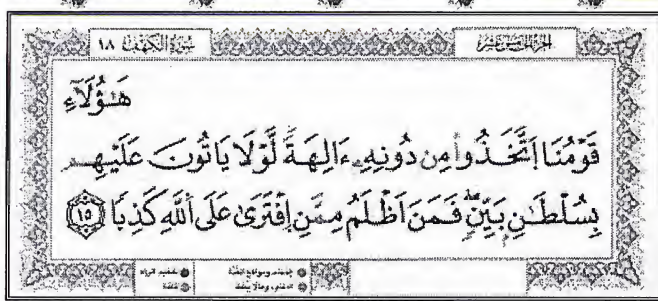 سُورَةُ الْكَهْفِ ١٨
هَٰٓؤُلَآءِ
قَوْمُنَا اَ۪تَّخَذُواْ مِن دُونِهِۦٓ ءَالِهَةٗ لَّوْلَا يَاتُونَ عَلَيْهِم
بِسُلْطَٰنِۢ بَيِّنٖۖ فَمَنَ اَظْلَمُ مِمَّنِ اِ۪فْتَرَىٰ عَلَى اَ۬للَّهِ كَذِباٗ ١٥